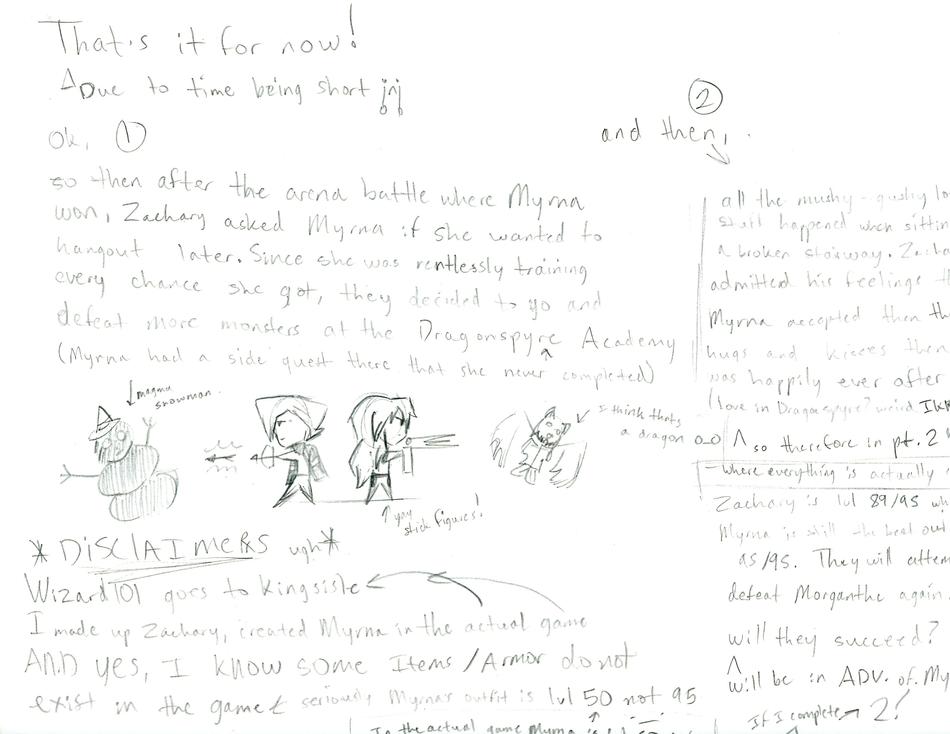 That's it for now!
Due to time being short
Ok, ①
so then after the arena battle where Myrna
won, Zachary asked Myrna if she wanted to
hangout later. Since she was rentlessly training
every chance she got, they decided to go and
defeat more monsters at the Dragonspyre Academy
(Myrna had a side quest there that she never completed)
magma
snowman.
I think thats
a dragon o_o
yay
stick figures!
*DiSCLAIMERS ugh*
Wizard101 goes to kingsisle
I made up Zachary, created Myrna in the actual game
AND yes, I know some Items/Armor do not
exist in the game seriously Myrna's outfit is lvl 50 not 95
In the actual game Myrna
②
and then,
all the mushy-gushy lo
stuff happened when sittin
a broken stairway. Zacha
admitted his feelings th
Myrna accepted then th
hugs and kisses then
was happily ever after
(love in Dragonspyre? weird IKR
so therefore in pt. 2
-where everything is actually
Zachary is lvl 89/95 wh
Myrna is still the beat out
95/95. They will attem
defeat Morganthe again.
will they succeed?
will be in ADV. of. My
If I complete 2!